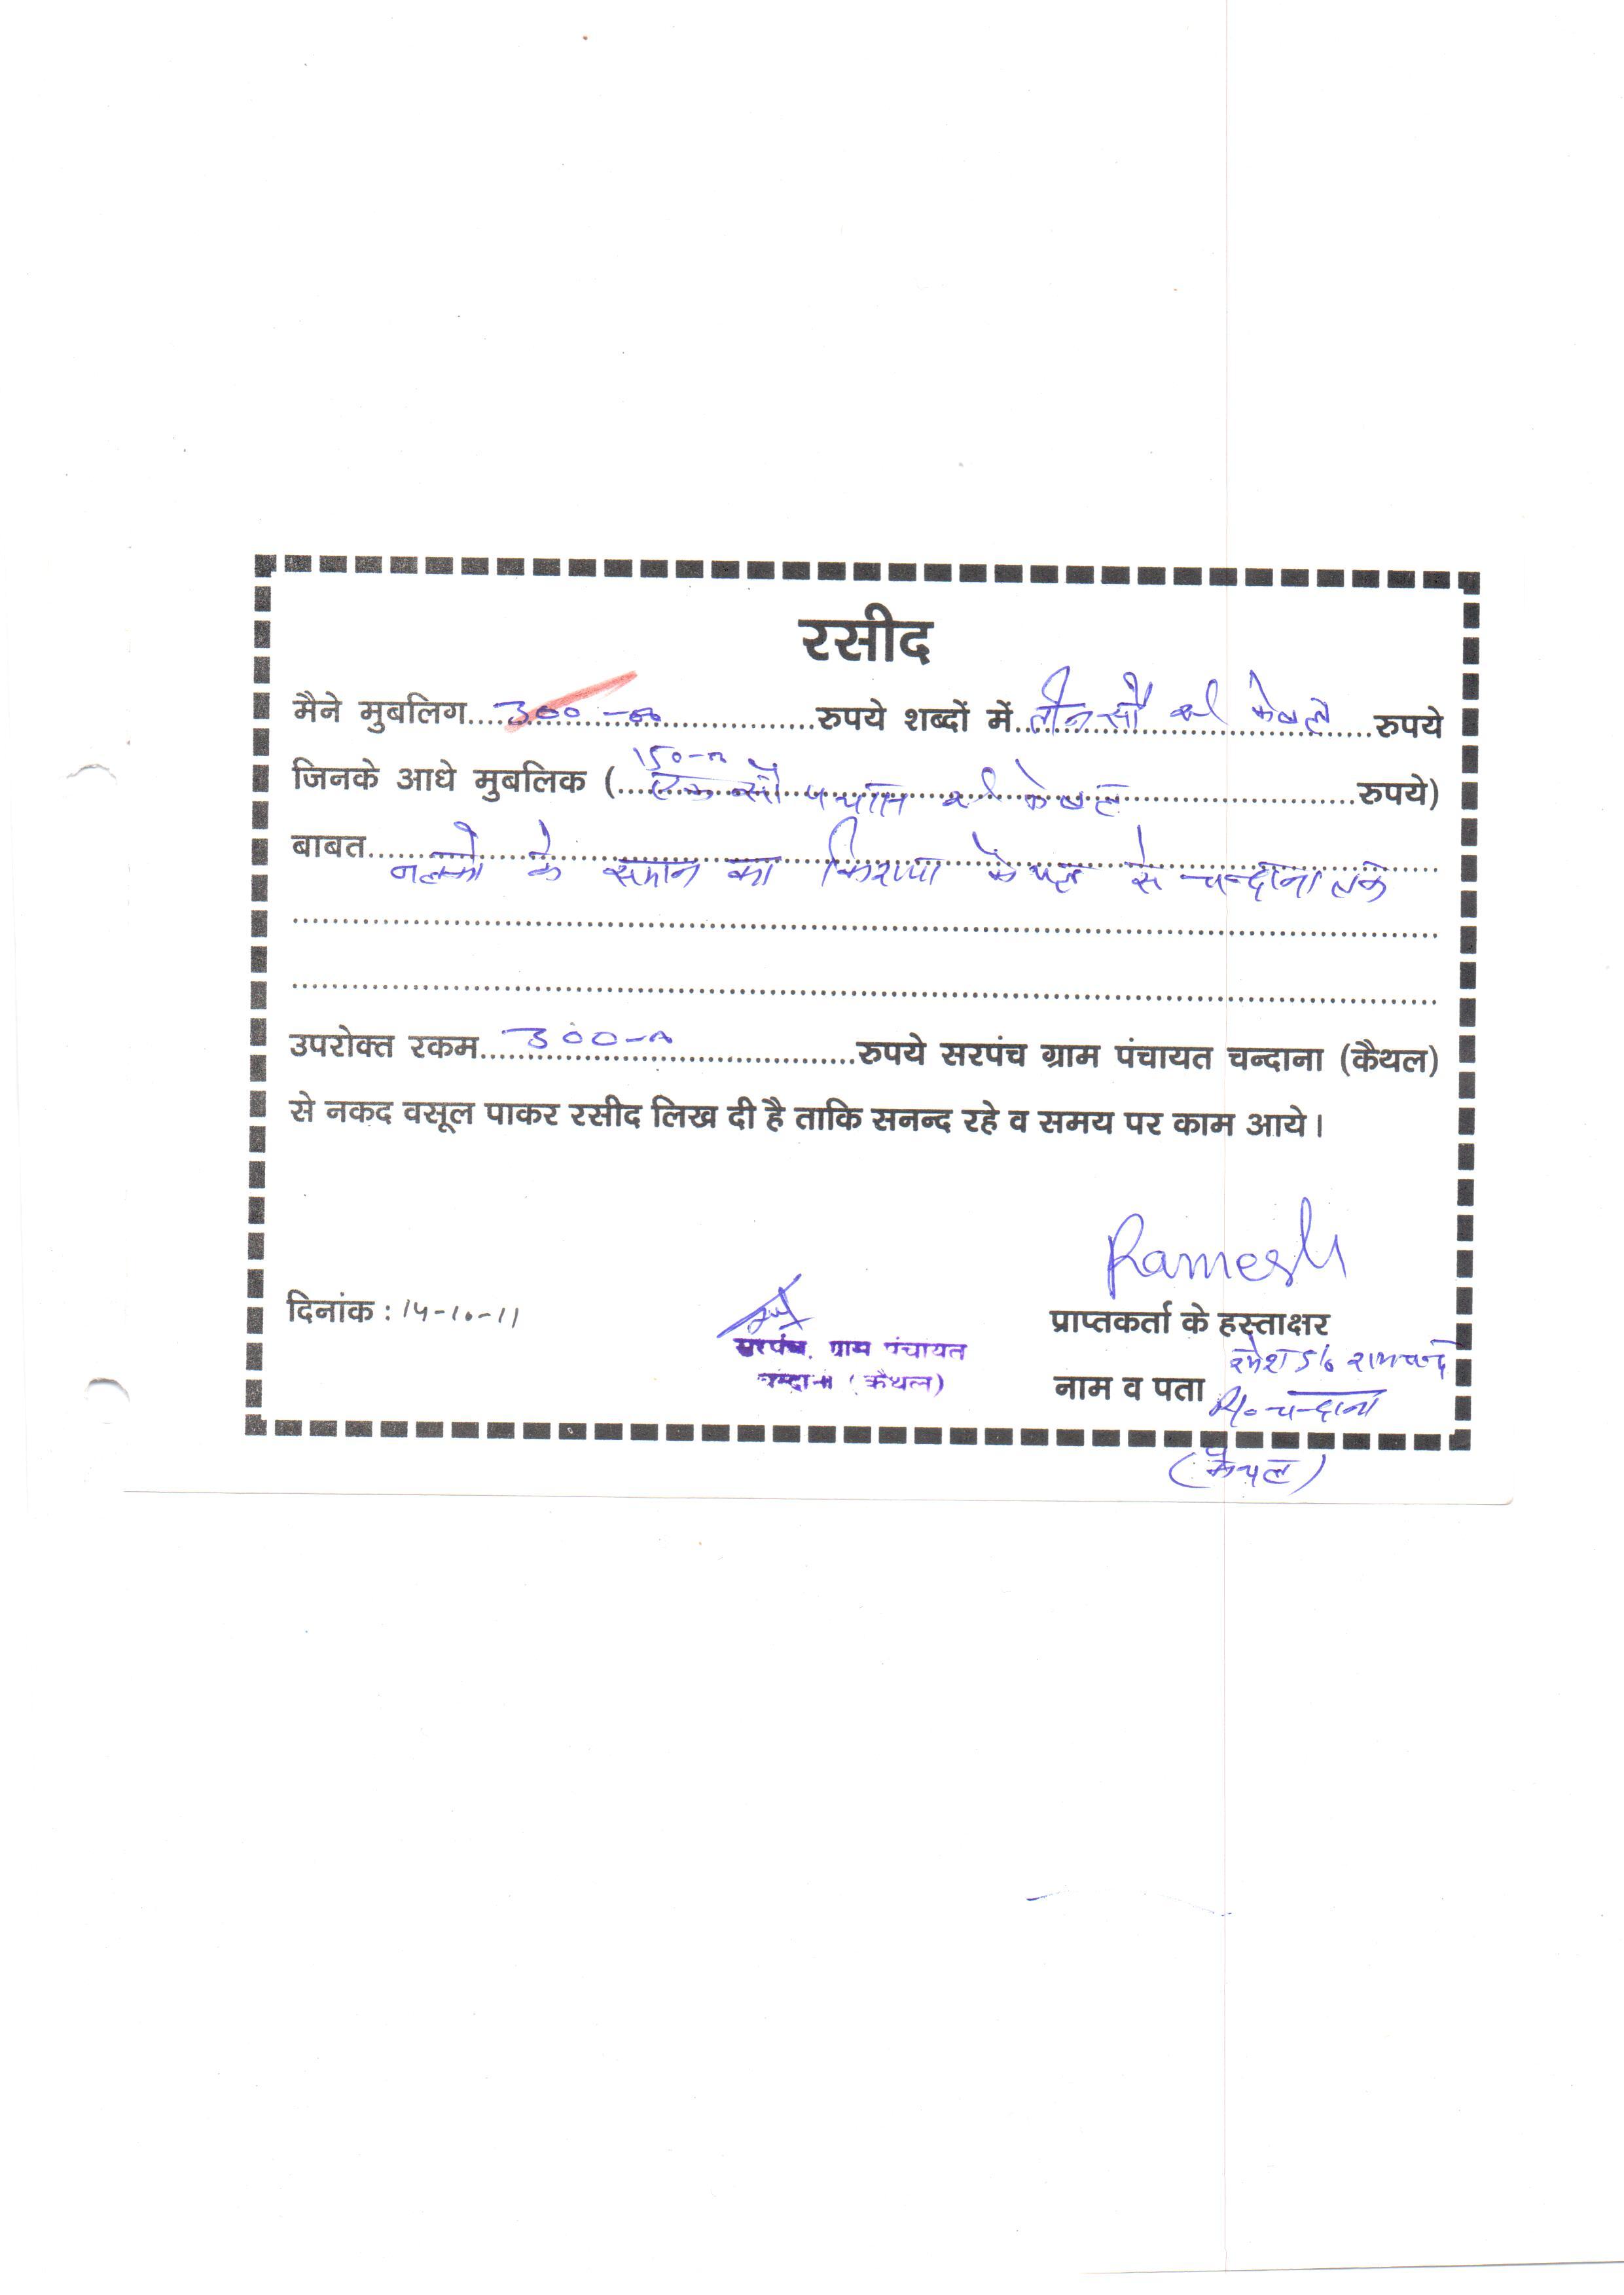 रसीद
मैने मुबलिग 300-00 रुपये शब्दों में तीन सौ रू केवल रुपये
150-00
जिनके आधे मुबलिक ( एक सौ पचास रू केवल रुपये)
बाबत
नलको के समान का किराया कैथल से चन्दाना तक
उपरोक्त रकम 300-00 रुपये सरपंच ग्राम पंचायत चन्दाना (कैथल)
से नकद वसूल पाकर रसीद लिख दी है ताकि सनन्द रहे व समय पर काम आये।
Ramesh
दिनांक : 14-10-11
प्राप्तकर्ता के हस्ताक्षर
सरपंच, ग्राम पंचायत
चन्दाना (कैथल)
रमेश S/o रामचन्द्र
नाम व पता R/o चन्दाना
(कैथल)